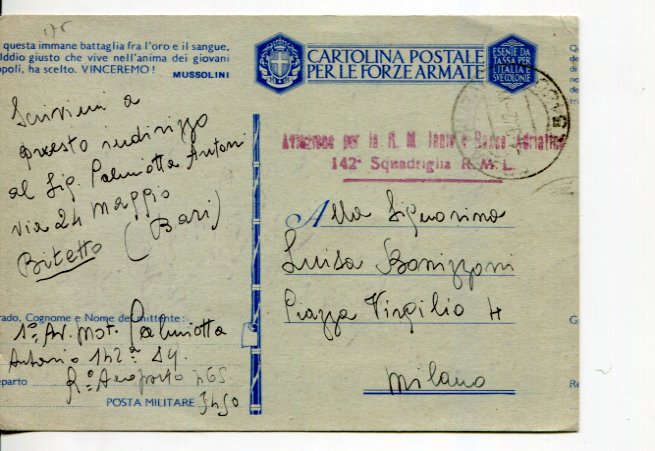 questa immane battaglia fra l'oro e il sangue,
Iddio giusto che vive nell'anima dei giovani
opoli, ha scelto. VINCEREMO!
MUSSOLINI
CARTOLINA POSTALE
PER LE FORZE ARMATE
ESENTE DA
TASSA PER
L'ITALIA E
SVE COLONIE
Scrivimi a
questo indirizzo
al Sig. Palmiotta Antoni
via 24 Maggio
Bitetto (Bari)
per la R. M. Ionio e Basso Adriatico
142ª Squadriglia R. M. L.
Alla Signorina
Luisa Bonizzoni
Piazza Virgilio 4
Milano
rado, Cognome e Nome del mittente:
1º Av. Mot. Palmiotta
Antonio 142ª Sq.
eparto Rº Aeroporto 465
POSTA MILITARE 3450